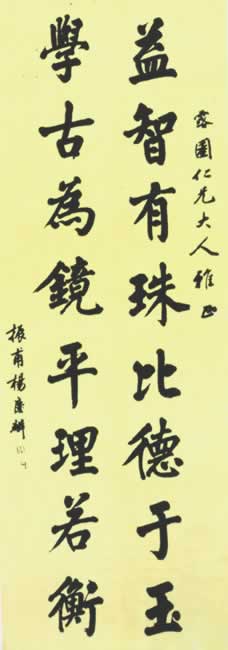 露圃仁兄大人雅正
益智有珠比德于玉
學古為鏡平理若衡
振甫楊慶麟